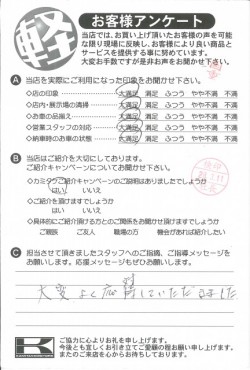 軽
お客様アンケート
当店では、お買い上げ頂いたお客様の声を可能
な限り現場に反映し、お客様により良い商品と
サービスを提供する事に努めています。
大変お手数ですが是非お声をお聞かせ下さい。
A 当店を実際にご利用になった印象をお聞かせ下さい。
◇店の印象 大満足 満足 ふつう やや不満 不満
◇店内・展示場の清掃 大満足 満足 ふつう やや不満 不満
◇お車の品揃え 大満足 満足 ふつう やや不満 不満
◇営業スタッフの対応 大満足 満足 ふつう やや不満 不満
◇納車時のお車の状態 大満足 満足 ふつう やや不満 不満
B 当店はご紹介を大切にしております。
ご紹介キャンペーンについてお聞かせ下さい
◇カミタケご紹介キャンペーンの説明はありましたでしょうか
はい いいえ
◇ご紹介を頂けますでしょうか
はい いいえ
◇具体的にご紹介頂ける方とのご関係をお聞かせ頂けますでしょうか
ご親族 ご友人 職場の方 機会があれば紹介したい
C 担当させて頂きましたスタッフへのご指摘、ご指導メッセージを
お願いします。応援メッセージもぜひお願いします。
大変よく応対していただきました
K
ご協力に心よりお礼を申し上げます。
今後とも宜しくお引き立てご愛顧の程お願い申し上げます。
またのご来店を心からお待ちしております。